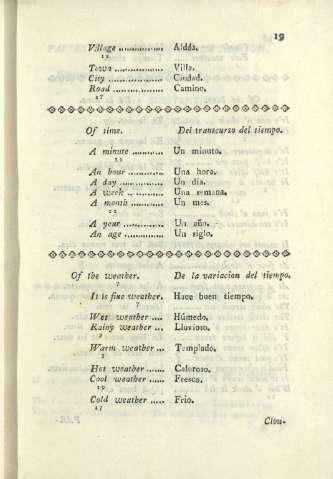 19
Village ............... Aldéa.
12
Town ................ Villa.
City ................. Ciudad.
Road ................. Camino.
17
Of time. Del transcurso del tiempo.
A minute ........... Un minuto.
12
An hour ............ Una hora.
A day ............... Un dia.
A week ............. Una semana.
A month ........... Un mes.
22
A year .............. Un año.
An age .............. Un siglo.
Of the weather. De la variacion del tiempo.
7
It is fine weather. Hace buen tiempo.
7
Wet weather .... Húmedo.
Rainy weather ... Lluvioso.
2
Warm weather ... Templado.
2
Hot weather ....... Caloroso.
Cool weather ...... Fresco.
19
Cold weather ..... Frio.
17
Clou-